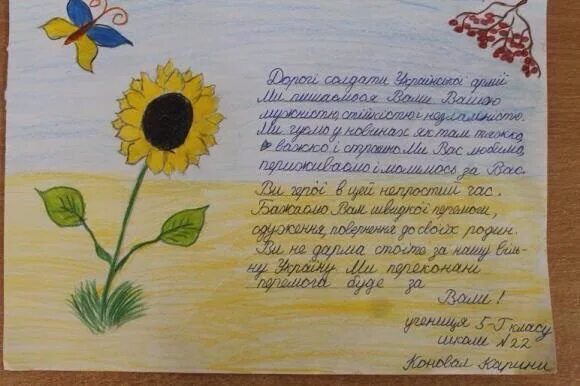 Дорогі солдати Української армії
Ми пишаємося Вами Вашою
мужністю, стійкістю і незламністю.
Ми чуємо у новинах як там тяжко,
важко і страшно. Ми Вас любимо,
переживаємо і молимось за Вас.
Ви герої в цей непростий час.
Бажаємо Вам швидкої перемоги,
одуження, повернення до своїх родин.
Ви не дарма стоїте за нашу віль-
ну Україну. Ми переконані
перемога буде за
Вами!
учениця 5-Г класу
школи №22
Коновал Карини